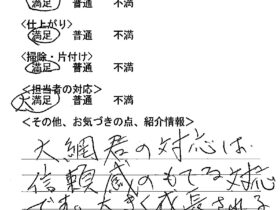 満足 普通 不満
<仕上がり>
満足 普通 不満
<掃除・片付け>
満足 普通 不満
<担当者の対応>
大満足 普通 不満
<その他、お気づきの点、紹介情報>
大綱君の対応は
信頼感のもてる対応
です。大きく成長される